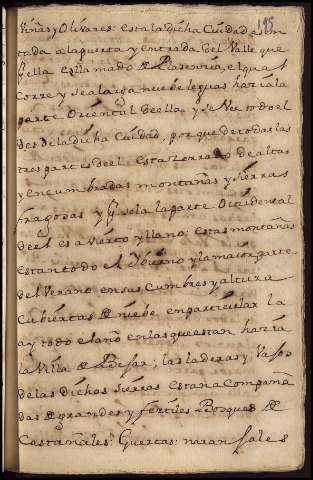 195
Viñas y Olivares: esta la dicha Ciudad asen
tada a la puerta y entrada del Valle que
della es llamado de Plasençia, el qual
corre y se alarga nuebe leguas hazia la
parte Oriental della, y se Vee todo el
desde la dicha Ciudad, porque de todas las
tres partes del esta zerrado de altas
y encumbradas montañas y sierras
fragosas y sola la parte Occidental
del es avierto y llano: estas montañas
estan todo el Ybierno y la maior parte
del Verano en sus Cumbres y altura
Cubiertas de niebe en particular la
ay todo el año en las que estan hazia
la Villa de Bejar; las laderas y Vajos
de las dichas sierras estan acompaña
das de grandes y fertiles Bosques de
Castañales: Guertas: naranjales